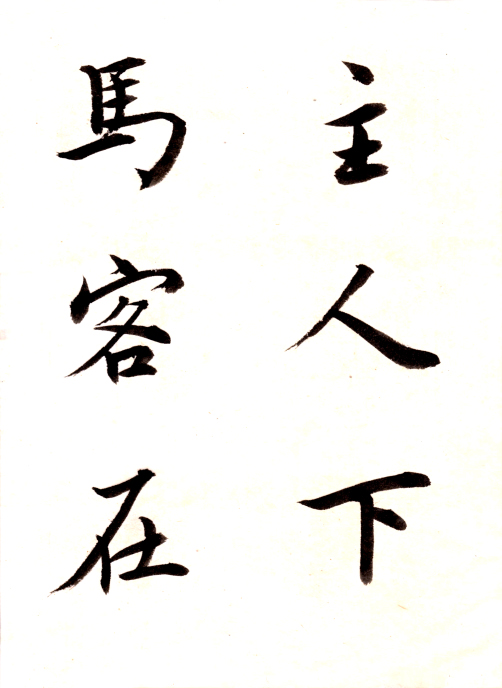 主人下
馬客在